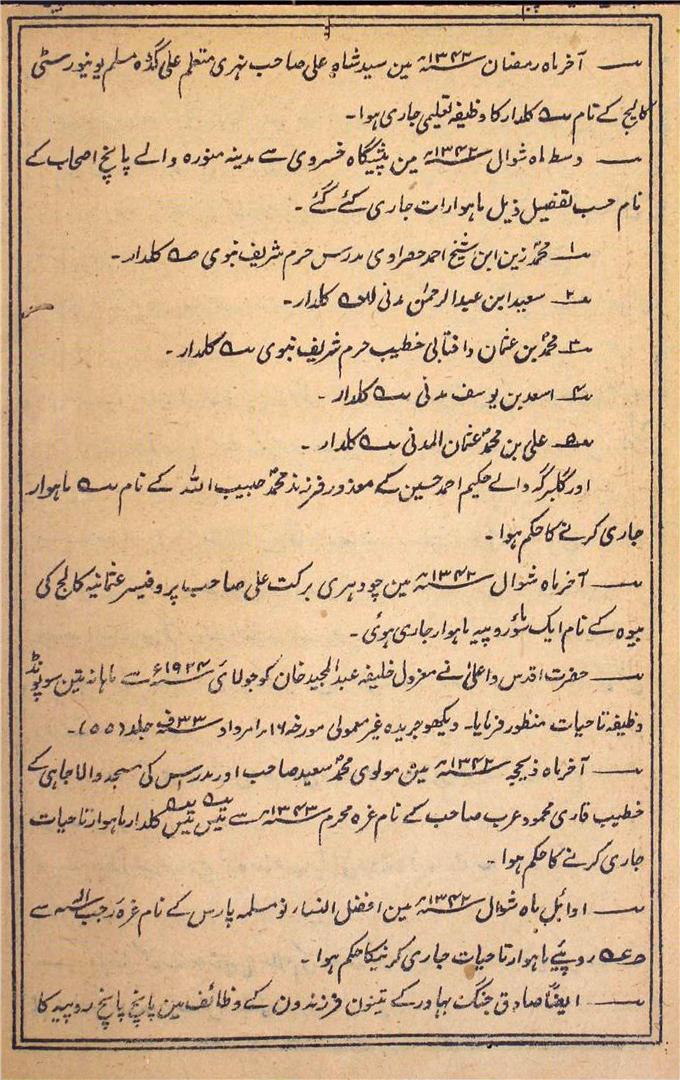 آخر ماہ رمضان سنہ ۱۳۴۲ھ مین سید شاہ علی صاحب نہری متعلم علی گڈہ مسلم یونیورسٹی
کالج کے نام کلدار کا وظیفہ تعلیمی جاری ہوا۔
وسط ماہ شوال سنہ ۱۳۴۲ھ مین پیشگاہ خسروی سے مدینہ منورہ والے پانچ اصحاب کے
نام حسب تفصیل ذیل ماہوارات جاری کئے گئے۔
۱ محمد زین ابن شیخ احمد حصراوی مدرس حرم شریف نبوی کلدار۔
۲ سعید ابن عبدالرحمٰن مدنی کلدار۔
۳ محمد بن عثمان دافتالی خطیب حرم شریف نبوی کلدار۔
۴ اسعد بن یوسف مدنی کلدار۔
۵ علی بن محمد عثمان المدنی کلدار۔
اور گلبرگہ والے حکیم احمد حسین کے معذور فرزند محمد حبیب اللہ کے نام ماہوار
جاری کرنے کا حکم ہوا۔
آخر ماہ شوال سنہ ۱۳۴۲ھ مین چودہری برکت علی صاحب پروفیسر عثمانیہ کالج کی
بیوہ کے نام ایک سو روپیہ ماہوار جاری ہوئی۔
حضرت اقدس و اعلیٰ نے معزول خلیفہ عبدالمجید خان کو جولائی سنہ ۱۹۲۴ء سے ماہانہ تین سو پونڈ
وظیفہ تا حیات منظور فرمایا۔ دیکھو جریدہ غیر معمولی مورخہ ۱۶ امرداد سنہ ۳۳ف جلد (۵۵)۔
آخر ماہ ذیحجہ سنہ ۱۳۴۲ھ مین مولوی محمد سعید صاحب اور مدراس کی مسجد والاجاہی کے
خطیب قاری محمود عرب صاحب کے نام غرہ محرم سنہ ۱۳۴۳ھ سے تیس تیس کلدار ماہوار تا حیات
جاری کرنے کا حکم ہوا۔
اوائل ماہ شوال سنہ ۱۳۴۲ھ مین افضل النساء نو مسلمہ پارس کے نام غرہ رجب سنہ الیہ سے
روپئے ماہوار تا حیات جاری کرنیکا حکم ہوا۔
ایضاً صادق جنگ بہادر کے تینون فرزندون کے وظائف مین پانچ پانچ روپیہ کا